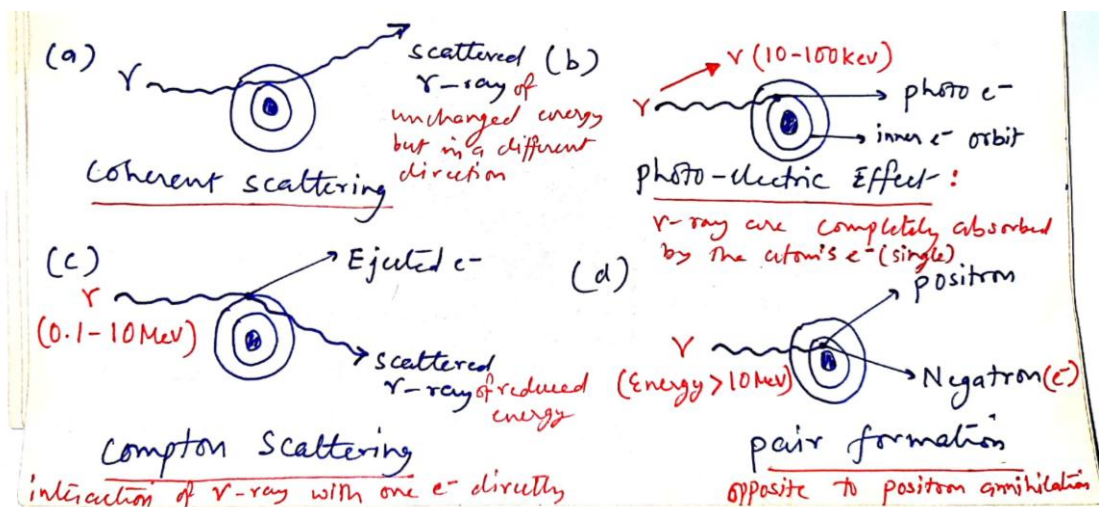 (a)
γ
scattered
γ-ray of
unchanged energy
but in a different
direction
coherent scattering
(b)
γ
γ (10-100kev)
photo e-
inner e- orbit
photo-electric Effect :
γ-ray are completely absorbed
by the atom's e- (single)
(c)
γ
(0.1-10 Mev)
Ejected e-
scattered
γ-ray of reduced
energy
compton scattering
interaction of γ-ray with one e- directly
(d)
γ
(Energy > 10 Mev)
position
Negatron (e-)
pair formation
opposite to position annihilation